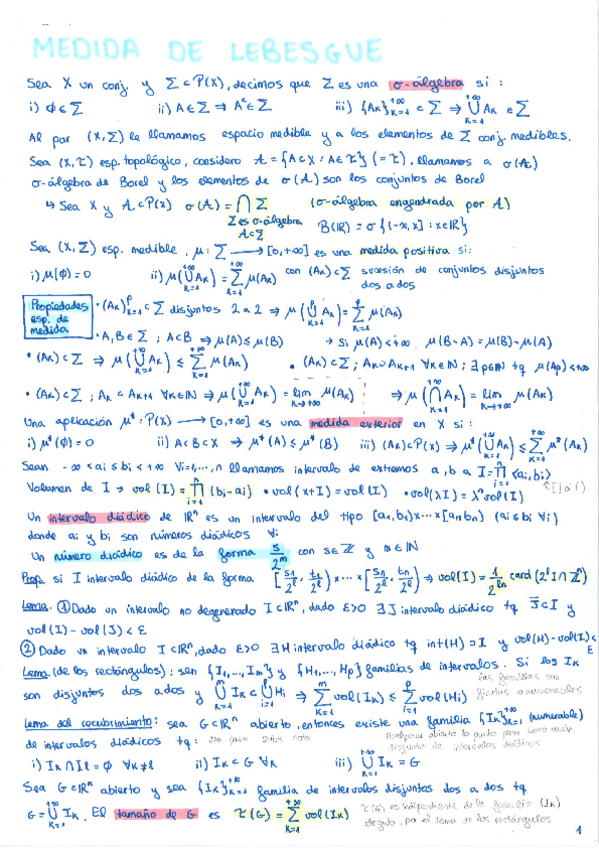 MEDIDA DE LEBESGUE
Sea X un conj. y Σ ⊂ P(X), decimos que Σ es una σ-álgebra si:
i) ∅ ∈ Σ ii) A ∈ Σ ⇒ Aᶜ ∈ Σ iii) {Aₖ}ₖ₌₁^{+∞} ⊂ Σ ⇒ ⋃ₖ₌₁^{+∞} Aₖ ∈ Σ
Al par (X,Σ) le llamamos espacio medible y a los elementos de Σ conj. medibles.
Sea (X,τ) esp. topológico, considero A = {A⊂X : A∈τ} (=τ), llamamos a σ(A)
σ-álgebra de Borel y los elementos de σ(A) son los conjuntos de Borel
↳ Sea X y A⊂P(X) σ(A) = ⋂ Σ (σ-álgebra engendrada por A)
Σ es σ-álgebra
A⊂Σ
B(ℝ) = σ{(-∞,x] : x∈ℝ}
Sea (X,Σ) esp. medible, μ: Σ → [0,+∞] es una medida positiva si:
i) μ(∅)=0 ii) μ(⋃ₖ₌₁^{+∞} Aₖ) = ∑ₖ₌₁^{+∞} μ(Aₖ) con (Aₖ)⊂Σ sucesión de conjuntos disjuntos
dos a dos
Propiedades
esp. de
medida
• (Aₖ)ₖ₌₁^p ⊂ Σ disjuntos 2 a 2 ⇒ μ(⋃ₖ₌₁^p Aₖ) = ∑ₖ₌₁^p μ(Aₖ)
• A,B∈Σ ; A⊂B ⇒ μ(A)≤μ(B) → si μ(A)<+∞ μ(B-A) = μ(B)-μ(A)
• (Aₖ)⊂Σ ⇒ μ(⋃ₖ₌₁^{+∞} Aₖ) ≤ ∑ₖ₌₁^{+∞} μ(Aₖ) • (Aₖ)⊂Σ ; Aₖ⊃Aₖ₊₁ ∀k∈ℕ ; ∃p∈ℕ tq μ(Ap)<+∞
• (Aₖ)⊂Σ ; Aₖ⊂Aₖ₊₁ ∀k∈ℕ ⇒ μ(⋃ₖ₌₁^{+∞} Aₖ) = lim_{k→+∞} μ(Aₖ) ⇒ μ(⋂ₖ₌₁^{+∞} Aₖ) = lim_{k→+∞} μ(Aₖ)
Una aplicación μ*: P(X) → [0,+∞] es una medida exterior en X si:
i) μ*(∅)=0 ii) A⊂B⊂X ⇒ μ*(A)≤μ*(B) iii) (Aₖ)⊂P(X) ⇒ μ*(⋃ₖ₌₁^{+∞} Aₖ) ≤ ∑ₖ₌₁^{+∞} μ*(Aₖ)
Sean -∞<ai≤bi<+∞ ∀i=1,...,n llamamos intervalo de extremos a, b a I = ∏ᵢ₌₁ⁿ ⟨ai,bi⟩
Volumen de I → vol(I) = ∏ᵢ₌₁ⁿ (bi-ai) • vol(x+I)=vol(I) • vol(λI)=λⁿvol(I)
Un intervalo diádico de ℝⁿ es un intervalo del tipo [a₁,b₁)×...×[an,bn) (ai≤bi ∀i)
donde ai y bi son números diádicos ∀i
Un número diádico es de la forma s/2ᵐ con s∈ℤ y m∈ℕ
Prop. si I intervalo diádico de la forma [s₁/2^ℓ, t₁/2^ℓ)×...×[sn/2^ℓ, tn/2^ℓ) ⇒ vol(I) = 1/2^{ℓn} card(2^ℓ I∩ℤⁿ)
Lema. ① Dado un intervalo no degenerado I⊂ℝⁿ, dado ε>0 ∃J intervalo diádico tq J̄⊂I y
vol(I)-vol(J)<ε
② Dado un intervalo I⊂ℝⁿ, dado ε>0 ∃H intervalo diádico tq int(H)⊃I y vol(H)-vol(I)<ε
Lema (de los rectángulos): sen {I₁,...,Im} y {H₁,...,Hp} familias de intervalos. Si los Iₖ
las familias son
son disjuntos dos a dos y ⋃ₖ₌₁^m Iₖ ⊂ ⋃ᵢ₌₁^p Hi ⇒ ∑ₖ₌₁^m vol(Iₖ) ≤ ∑ᵢ₌₁^p vol(Hi)
finitas o numerables
Lema del recubrimiento: sea G⊂ℝⁿ abierto, entonces existe una familia {Iₖ}ₖ₌₁^{+∞} (numerable)
de intervalos diádicos tq:
Cualquier abierto lo puedo poner como unión
disjunta de intervalos diádicos
i) Iₖ∩Iℓ=∅ ∀k≠ℓ ii) Īₖ⊂G ∀k iii) ⋃ₖ₌₁^{+∞} Iₖ = G
Sea G⊂ℝⁿ abierto y sea {Iₖ}ₖ₌₁^{+∞} familia de intervalos disjuntos dos a dos tq
G=⋃ₖ₌₁^{+∞} Iₖ. El tamaño de G es τ(G) = ∑ₖ₌₁^{+∞} vol(Iₖ)
τ(G) es independiente de la familia {Iₖ}
elegida, por el lema de los rectángulos
1